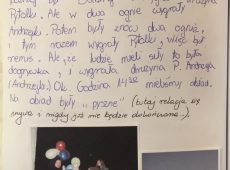 Pytolki. Ale w dwa ognie wygrały
Andrzejki. Potem były znów dwa ognie,
i tym razem wygrały Pytolki, więc był
remis. Ale że ludzie mieli siły to była
dogrywka, i wygrała drużyna P. Andrzeja
(Andrzejki). Ok. Godzina 14:30 mieliśmy obiad.
Na obiad były „pyszne” (tutaj relacja się
urywa i nigdy już nie będzie dokończona...).